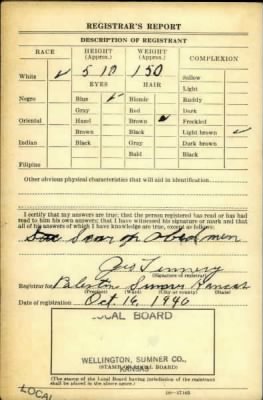 REGISTRAR'S REPORT
DESCRIPTION OF REGISTRANT
RACE HEIGHT (Approx.) WEIGHT (Approx.) COMPLEXION
White ✓ 5 10 150 Sallow
EYES HAIR Light
Negro Blue ✓ Blonde Ruddy
Gray Red Dark
Oriental Hazel Brown ✓ Freckled
Brown Black Light brown ✓
Indian Black Gray Dark brown
Bald Black
Filipino
Other obvious physical characteristics that will aid in identification
I certify that my answers are true; that the person registered has read or has had
read to him his own answers; that I have witnessed his signature or mark and that
all of his answers of which I have knowledge are true, except as follows:
Scar on Abdomen
(Signature of registrar)
Registrar for Palestine Sumner Kansas
(Precinct) (Ward) (City or county) (State)
Date of registration Oct 16, 1940
LOCAL BOARD
WELLINGTON, SUMNER CO.,
KANSAS
(STAMP OF LOCAL BOARD)
(The stamp of the Local Board having jurisdiction of the registrant
shall be placed in the above space.)
LOCAL